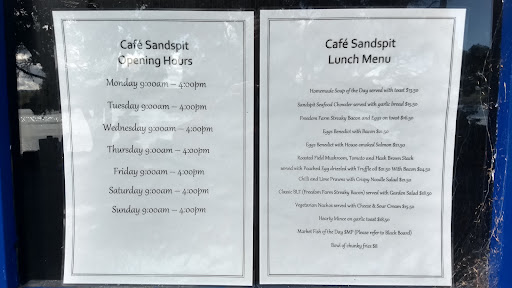 Café Sandspit
Opening Hours
Monday 9:00am – 4:00pm
Tuesday 9:00am – 4:00pm
Wednesday 9:00am – 4:00pm
Thursday 9:00am – 4:00pm
Friday 9:00am – 4:00pm
Saturday 9:00am – 4:00pm
Sunday 9:00am – 4:00pm
Café Sandspit
Lunch Menu
Homemade Soup of the Day served with toast
Sandspit Seafood Chowder served with garlic bread
Freedom Farm Streaky Bacon and Eggs on toast
Eggs Benedict with Bacon
Eggs Benedict with House smoked Salmon
Roasted Field Mushroom, Tomato and Hash Brown Stack
served with Poached Egg drizzled with Truffle oil With Bacon
Chilli and Lime Prawns with Crispy Noodle Salad
Classic BLT (Freedom Farm Streaky Bacon) served with Garden Salad
Vegetarian Nachos served with Cheese & Sour Cream
Hearty Mince on garlic toast
Market Fish of the Day $MP (Please refer to Black Board)
Bowl of chunky fries $8